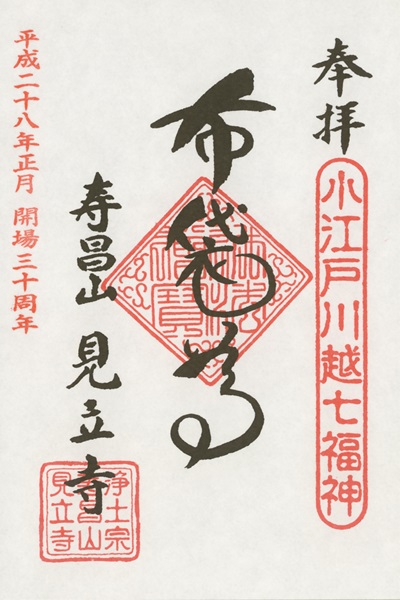 奉拝
小江戸川越七福神
布袋尊
寿昌山 見立寺
浄土宗
寿昌山
見立寺
平成二十八年正月 開場三十周年